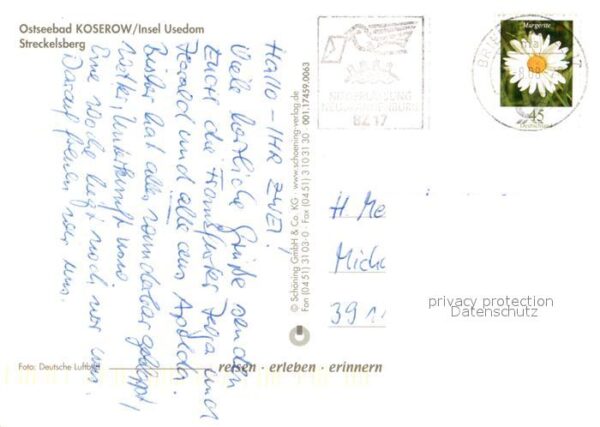 Ostseebad KOSEROW/Insel Usedom
Streckelsberg
Hallo - IHR ZWEI!
Viele herzliche Grüße senden
Euch die
und alle aus Apolda.
Bisher hat alles wunderbar geklappt,
Wetter, Unterkunft usw.
Eine Woche liegt noch vor uns.
Darauf freuen wir uns.
Foto: Deutsche Luftbild
© Schöning GmbH & Co. KG · www.schoening-verlag.de
Fon (04 51) 31 03-0 · Fax (04 51) 3 10 31 30 001.17459.0063
reisen · erleben · erinnern
BZ 17
Margerite
45
Deutschland
H. Me
Mich
391
privacy protection
Datenschutz